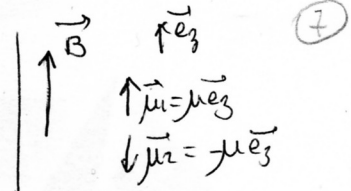 B⃗ ↑e⃗₃ 7
↑μ⃗₁=μe⃗₃
↓μ⃗₂=-μe⃗₃